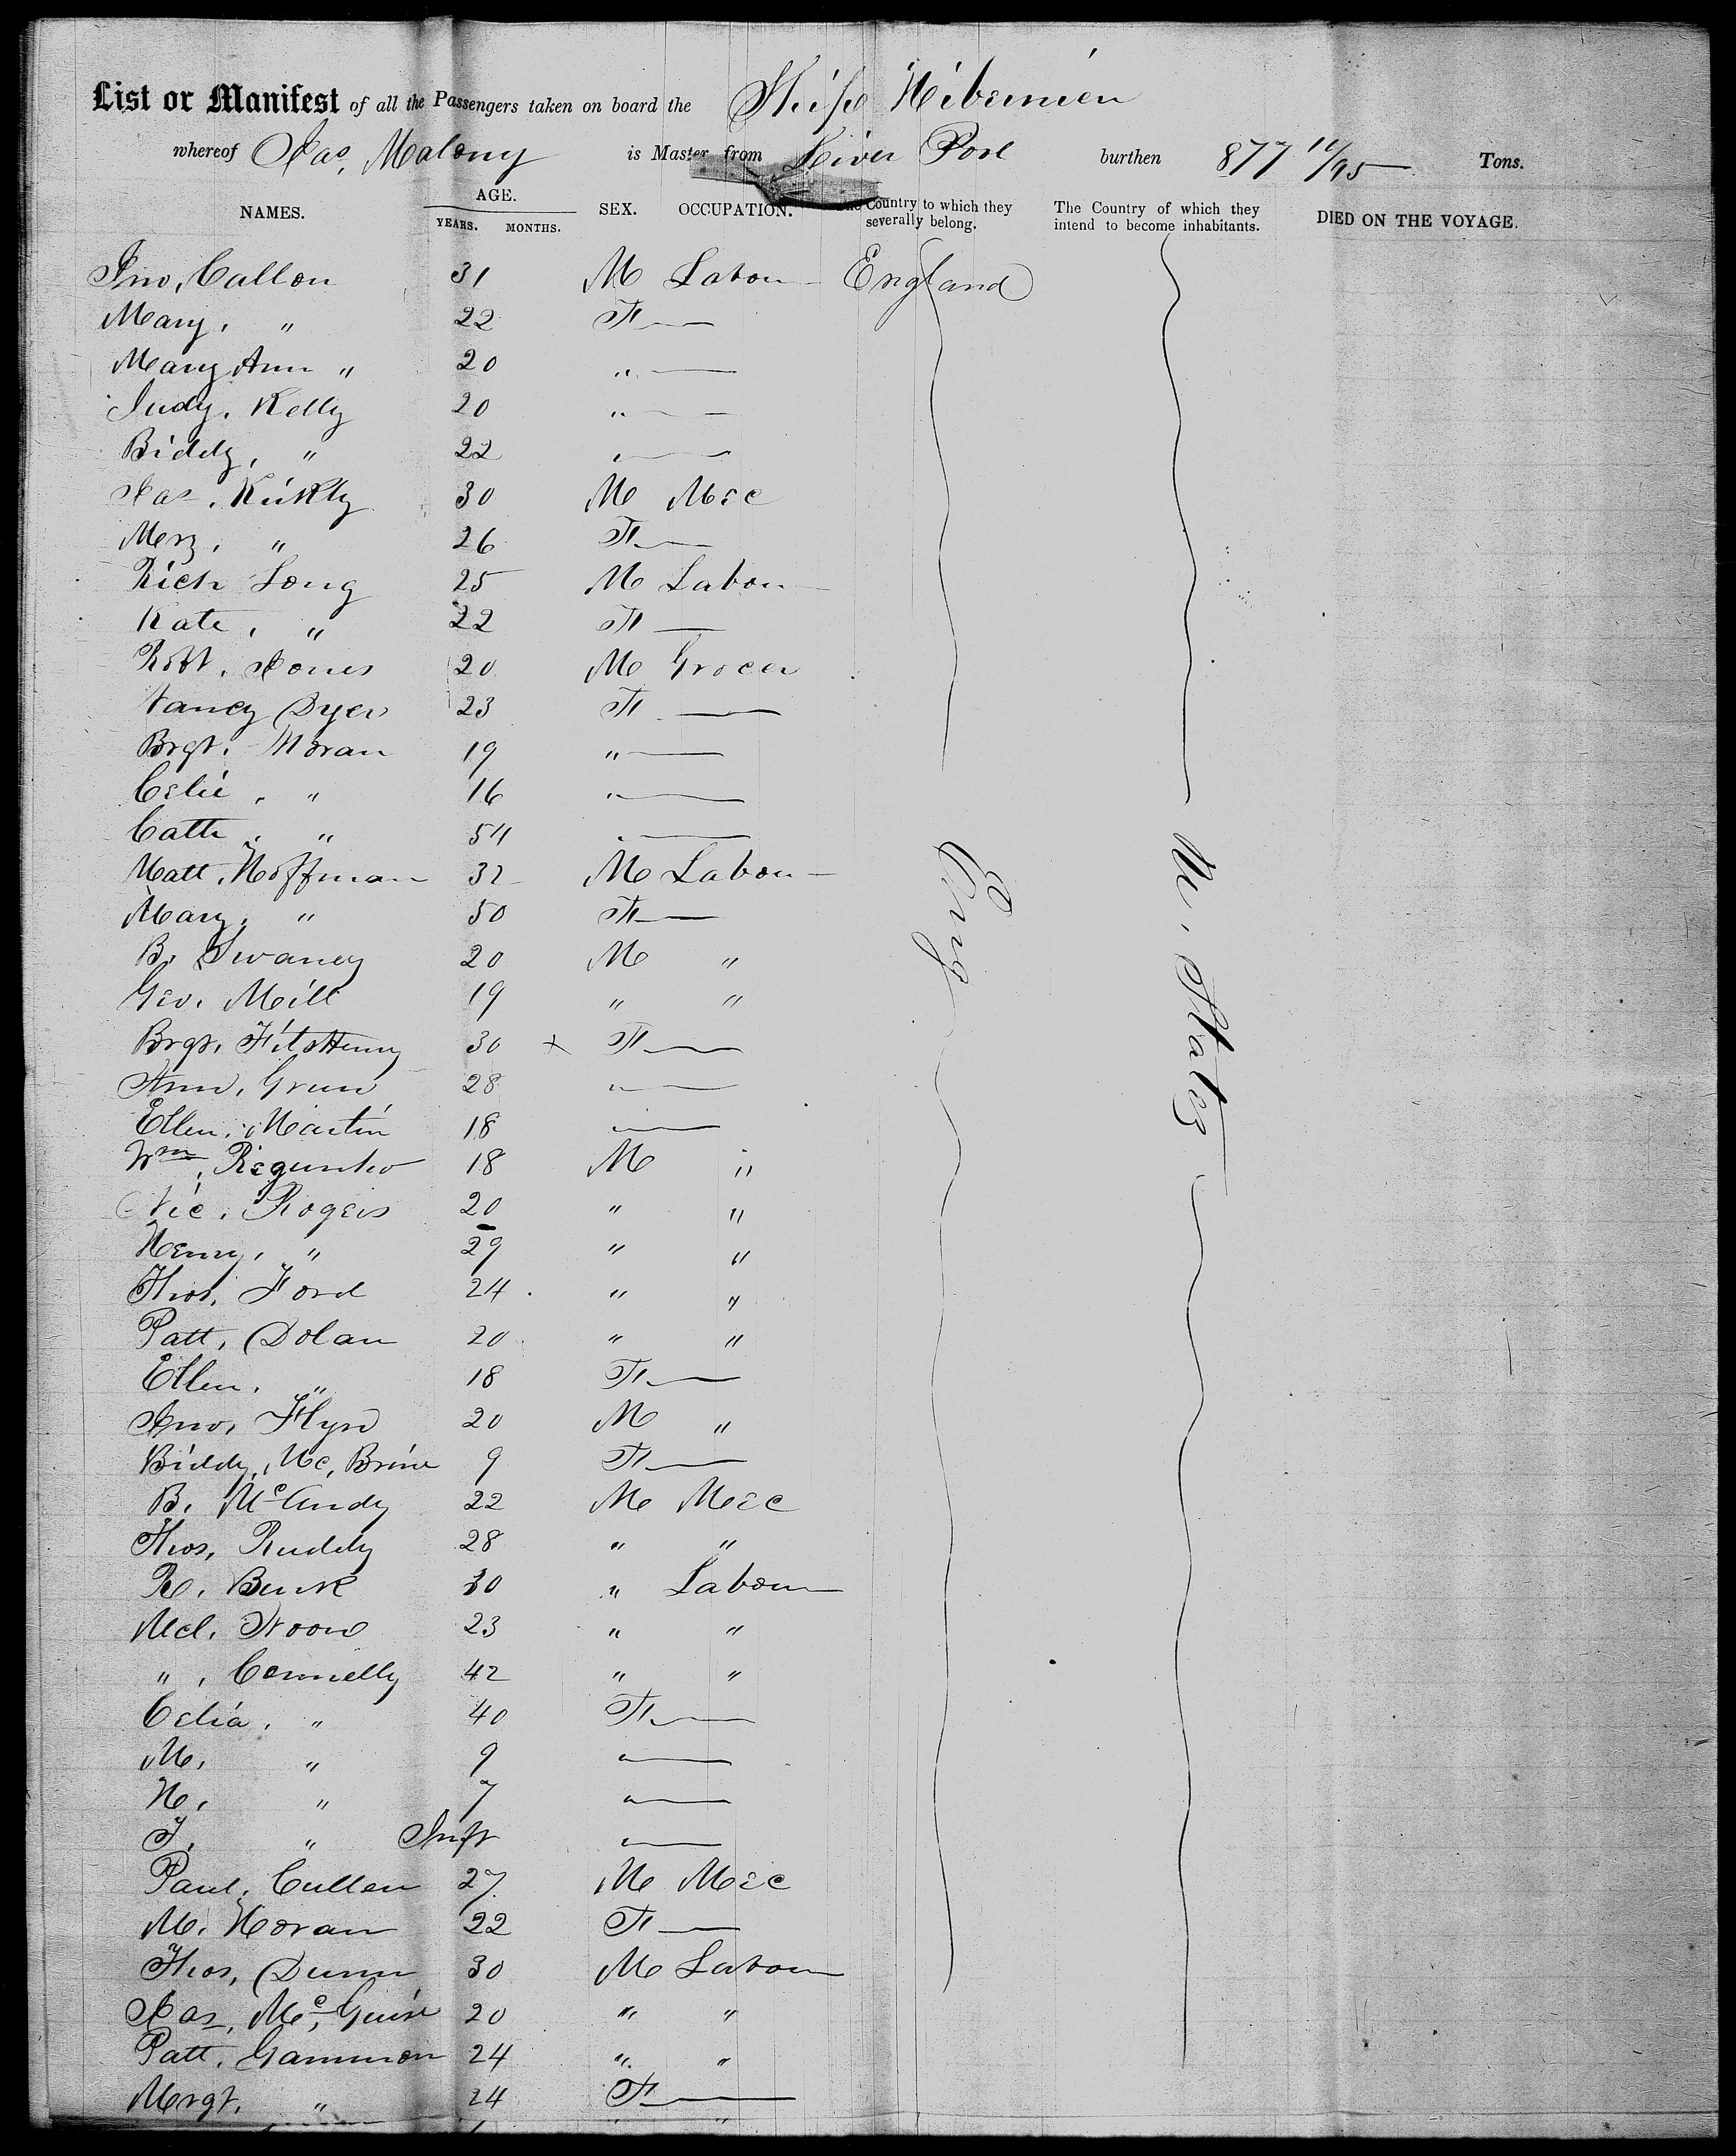 List or Manifest of all the Passengers taken on board the Ship Hibernien
whereof Jas, Malony is Master from Liver Pool burthen 877 11/95 Tons.
NAMES. AGE. YEARS. MONTHS. SEX. OCCUPATION. The Country to which they severally belong. The Country of which they intend to become inhabitants. DIED ON THE VOYAGE.
Jno, Callon 31 M Labour England
Mary, " 22 F
Mary Ann " 20 "
Judy, Kelly 20 "
Biddy, " 22 "
Jas, 30 M Mec
" 26 F
Rich Long 25 M Labour
Kate, " 22 F
Robt, Jones 20 M Grocer
Nancy Dyer 23 F
Brgt, Moran 19 "
Celie, " 16 "
Cath, " 54 "
Matt, Hoffman 32 M Labour
Mary, " 50 F
B. Swaney 20 M "
Geo, Mill 19 " "
Brgt, FitsHenry 30 x F
Ann, 28 "
Ellen, Martin 18 "
Wm, 18 M "
Nic, Rogers 20 " "
Henry, " 29 " "
Thos, Ford 24 " "
Patt, Dolan 20 " "
Ellen, " 18 F
Jno, Flyn 20 M "
Biddy, Mc, Brine 9 F
B. McAndy 22 M Mec
Thos, Ruddy 28 " "
R. Burk 30 " Labour
Mcl, 23 " "
", Connelly 42 " "
Celia, " 40 F
M, " 9 "
H, " 7 "
" Inft "
Paul, Cullen 27 M Mec
M, Horan 22 F
Thos, Dunn 30 M Labour
Jas, Mc, Guire 20 " "
Patt, Gammon 24 " "
Mrgt, " 24 F
Eng
U. States